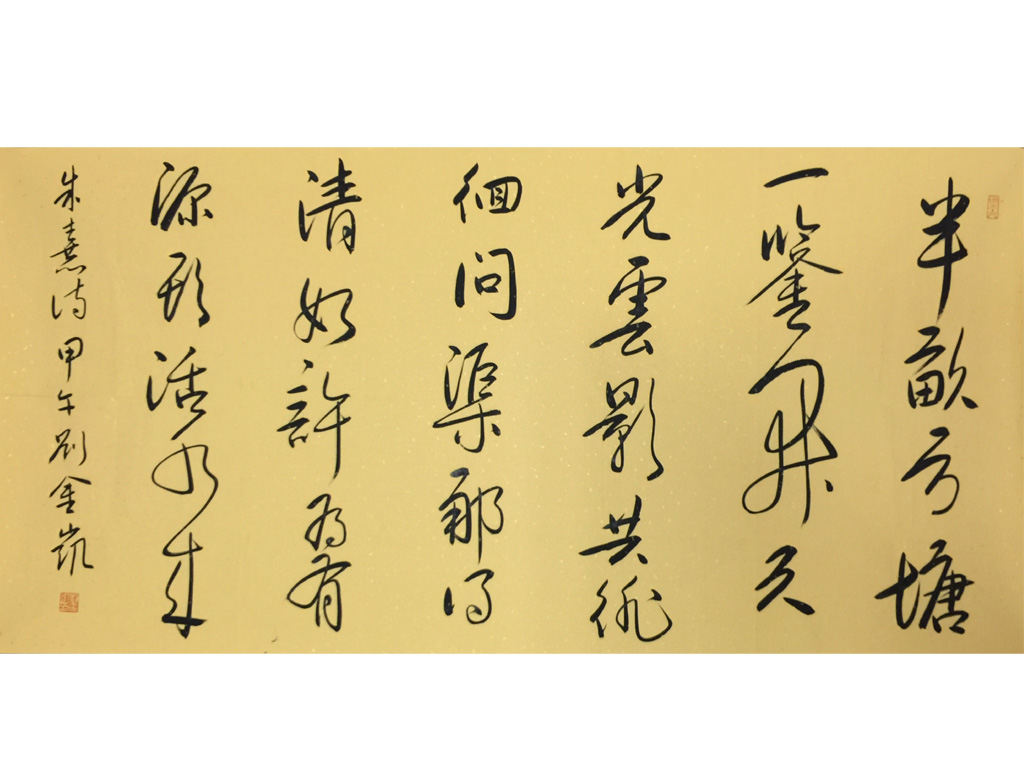 半畝方塘
一鑒開天
光雲影共徘
徊問渠那得
清如許為有
源頭活水來
朱熹詩甲午劉金凱